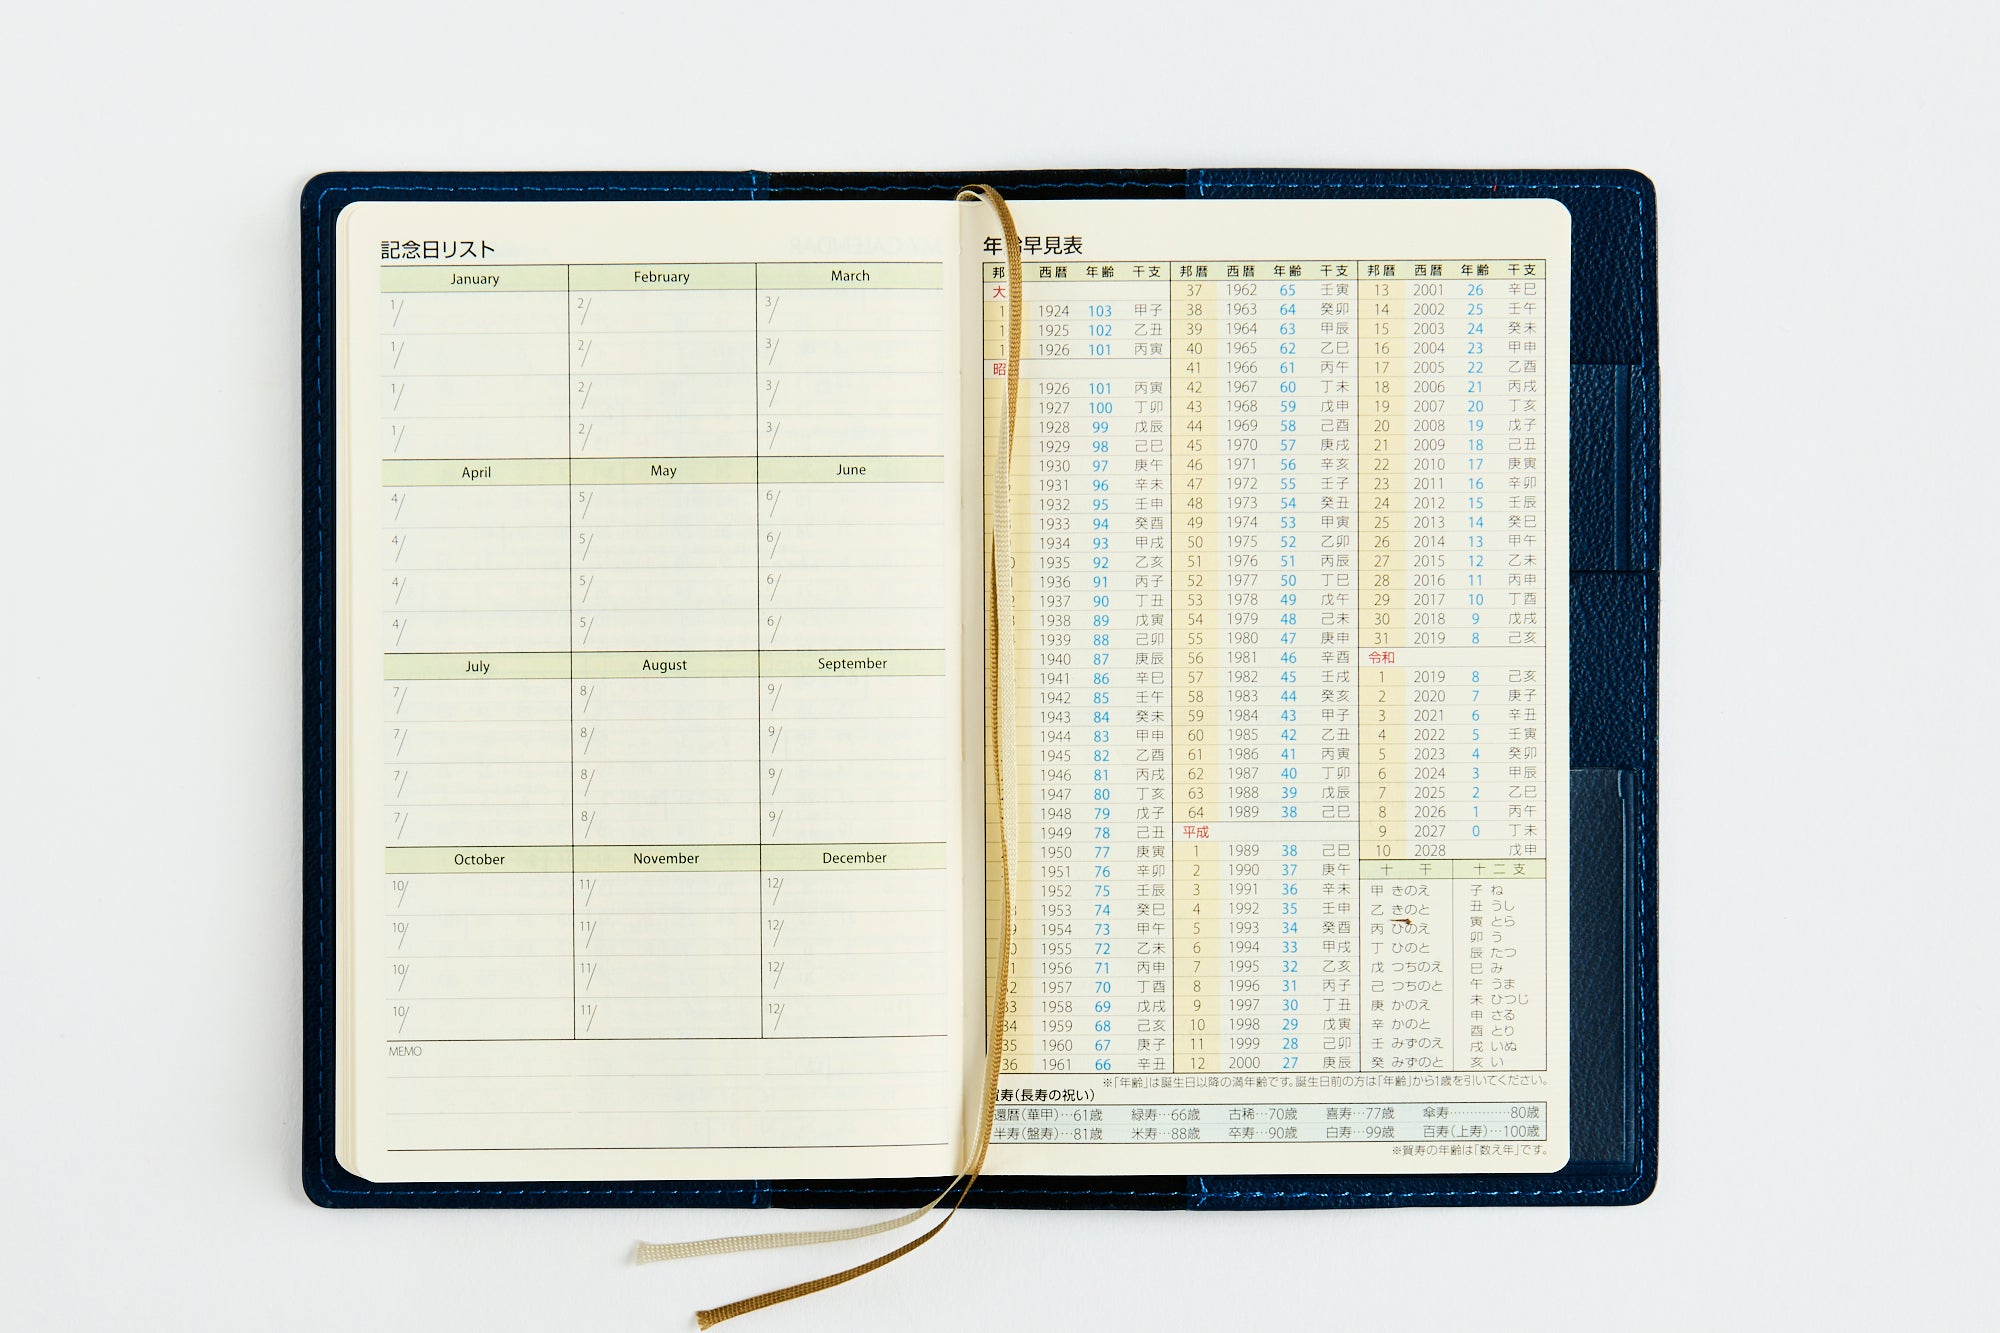 記念日リスト
January February March
1/ 2/ 3/
1/ 2/ 3/
1/ 2/ 3/
1/ 2/ 3/
April May June
4/ 5/ 6/
4/ 5/ 6/
4/ 5/ 6/
4/ 5/ 6/
July August September
7/ 8/ 9/
7/ 8/ 9/
7/ 8/ 9/
7/ 8/ 9/
October November December
10/ 11/ 12/
10/ 11/ 12/
10/ 11/ 12/
10/ 11/ 12/
MEMO
年齢早見表
邦 西暦 年齢 干支
大
1 1924 103 甲子
1 1925 102 乙丑
1 1926 101 丙寅
昭
1926 101 丙寅
1927 100 丁卯
1928 99 戊辰
1929 98 己巳
1930 97 庚午
1931 96 辛未
1932 95 壬申
1933 94 癸酉
1934 93 甲戌
1935 92 乙亥
1936 91 丙子
1937 90 丁丑
1938 89 戊寅
1939 88 己卯
1940 87 庚辰
1941 86 辛巳
1942 85 壬午
1943 84 癸未
1944 83 甲申
1945 82 乙酉
1946 81 丙戌
1947 80 丁亥
1948 79 戊子
1949 78 己丑
1950 77 庚寅
1951 76 辛卯
1952 75 壬辰
1953 74 癸巳
1954 73 甲午
1955 72 乙未
1956 71 丙申
1957 70 丁酉
33 1958 69 戊戌
34 1959 68 己亥
35 1960 67 庚子
36 1961 66 辛丑
邦暦 西暦 年齢 干支
37 1962 65 壬寅
38 1963 64 癸卯
39 1964 63 甲辰
40 1965 62 乙巳
41 1966 61 丙午
42 1967 60 丁未
43 1968 59 戊申
44 1969 58 己酉
45 1970 57 庚戌
46 1971 56 辛亥
47 1972 55 壬子
48 1973 54 癸丑
49 1974 53 甲寅
50 1975 52 乙卯
51 1976 51 丙辰
52 1977 50 丁巳
53 1978 49 戊午
54 1979 48 己未
55 1980 47 庚申
56 1981 46 辛酉
57 1982 45 壬戌
58 1983 44 癸亥
59 1984 43 甲子
60 1985 42 乙丑
61 1986 41 丙寅
62 1987 40 丁卯
63 1988 39 戊辰
64 1989 38 己巳
平成
1 1989 38 己巳
2 1990 37 庚午
3 1991 36 辛未
4 1992 35 壬申
5 1993 34 癸酉
6 1994 33 甲戌
7 1995 32 乙亥
8 1996 31 丙子
9 1997 30 丁丑
10 1998 29 戊寅
11 1999 28 己卯
12 2000 27 庚辰
邦暦 西暦 年齢 干支
13 2001 26 辛巳
14 2002 25 壬午
15 2003 24 癸未
16 2004 23 甲申
17 2005 22 乙酉
18 2006 21 丙戌
19 2007 20 丁亥
20 2008 19 戊子
21 2009 18 己丑
22 2010 17 庚寅
23 2011 16 辛卯
24 2012 15 壬辰
25 2013 14 癸巳
26 2014 13 甲午
27 2015 12 乙未
28 2016 11 丙申
29 2017 10 丁酉
30 2018 9 戊戌
31 2019 8 己亥
令和
1 2019 8 己亥
2 2020 7 庚子
3 2021 6 辛丑
4 2022 5 壬寅
5 2023 4 癸卯
6 2024 3 甲辰
7 2025 2 乙巳
8 2026 1 丙午
9 2027 0 丁未
10 2028 戊申
十干
甲 きのえ
乙 きのと
丙 ひのえ
丁 ひのと
戊 つちのえ
己 つちのと
庚 かのえ
辛 かのと
壬 みずのえ
癸 みずのと
十二支
子 ね
丑 うし
寅 とら
卯 う
辰 たつ
巳 み
午 うま
未 ひつじ
申 さる
酉 とり
戌 いぬ
亥 い
※「年齢」は誕生日以降の満年齢です。誕生日前の方は「年齢」から1歳を引いてください。
賀寿(長寿の祝い)
還暦(華甲)…61歳 緑寿…66歳 古稀…70歳 喜寿…77歳 傘寿…………80歳
半寿(盤寿)…81歳 米寿…88歳 卒寿…90歳 白寿…99歳 百寿(上寿)…100歳
※賀寿の年齢は「数え年」です。